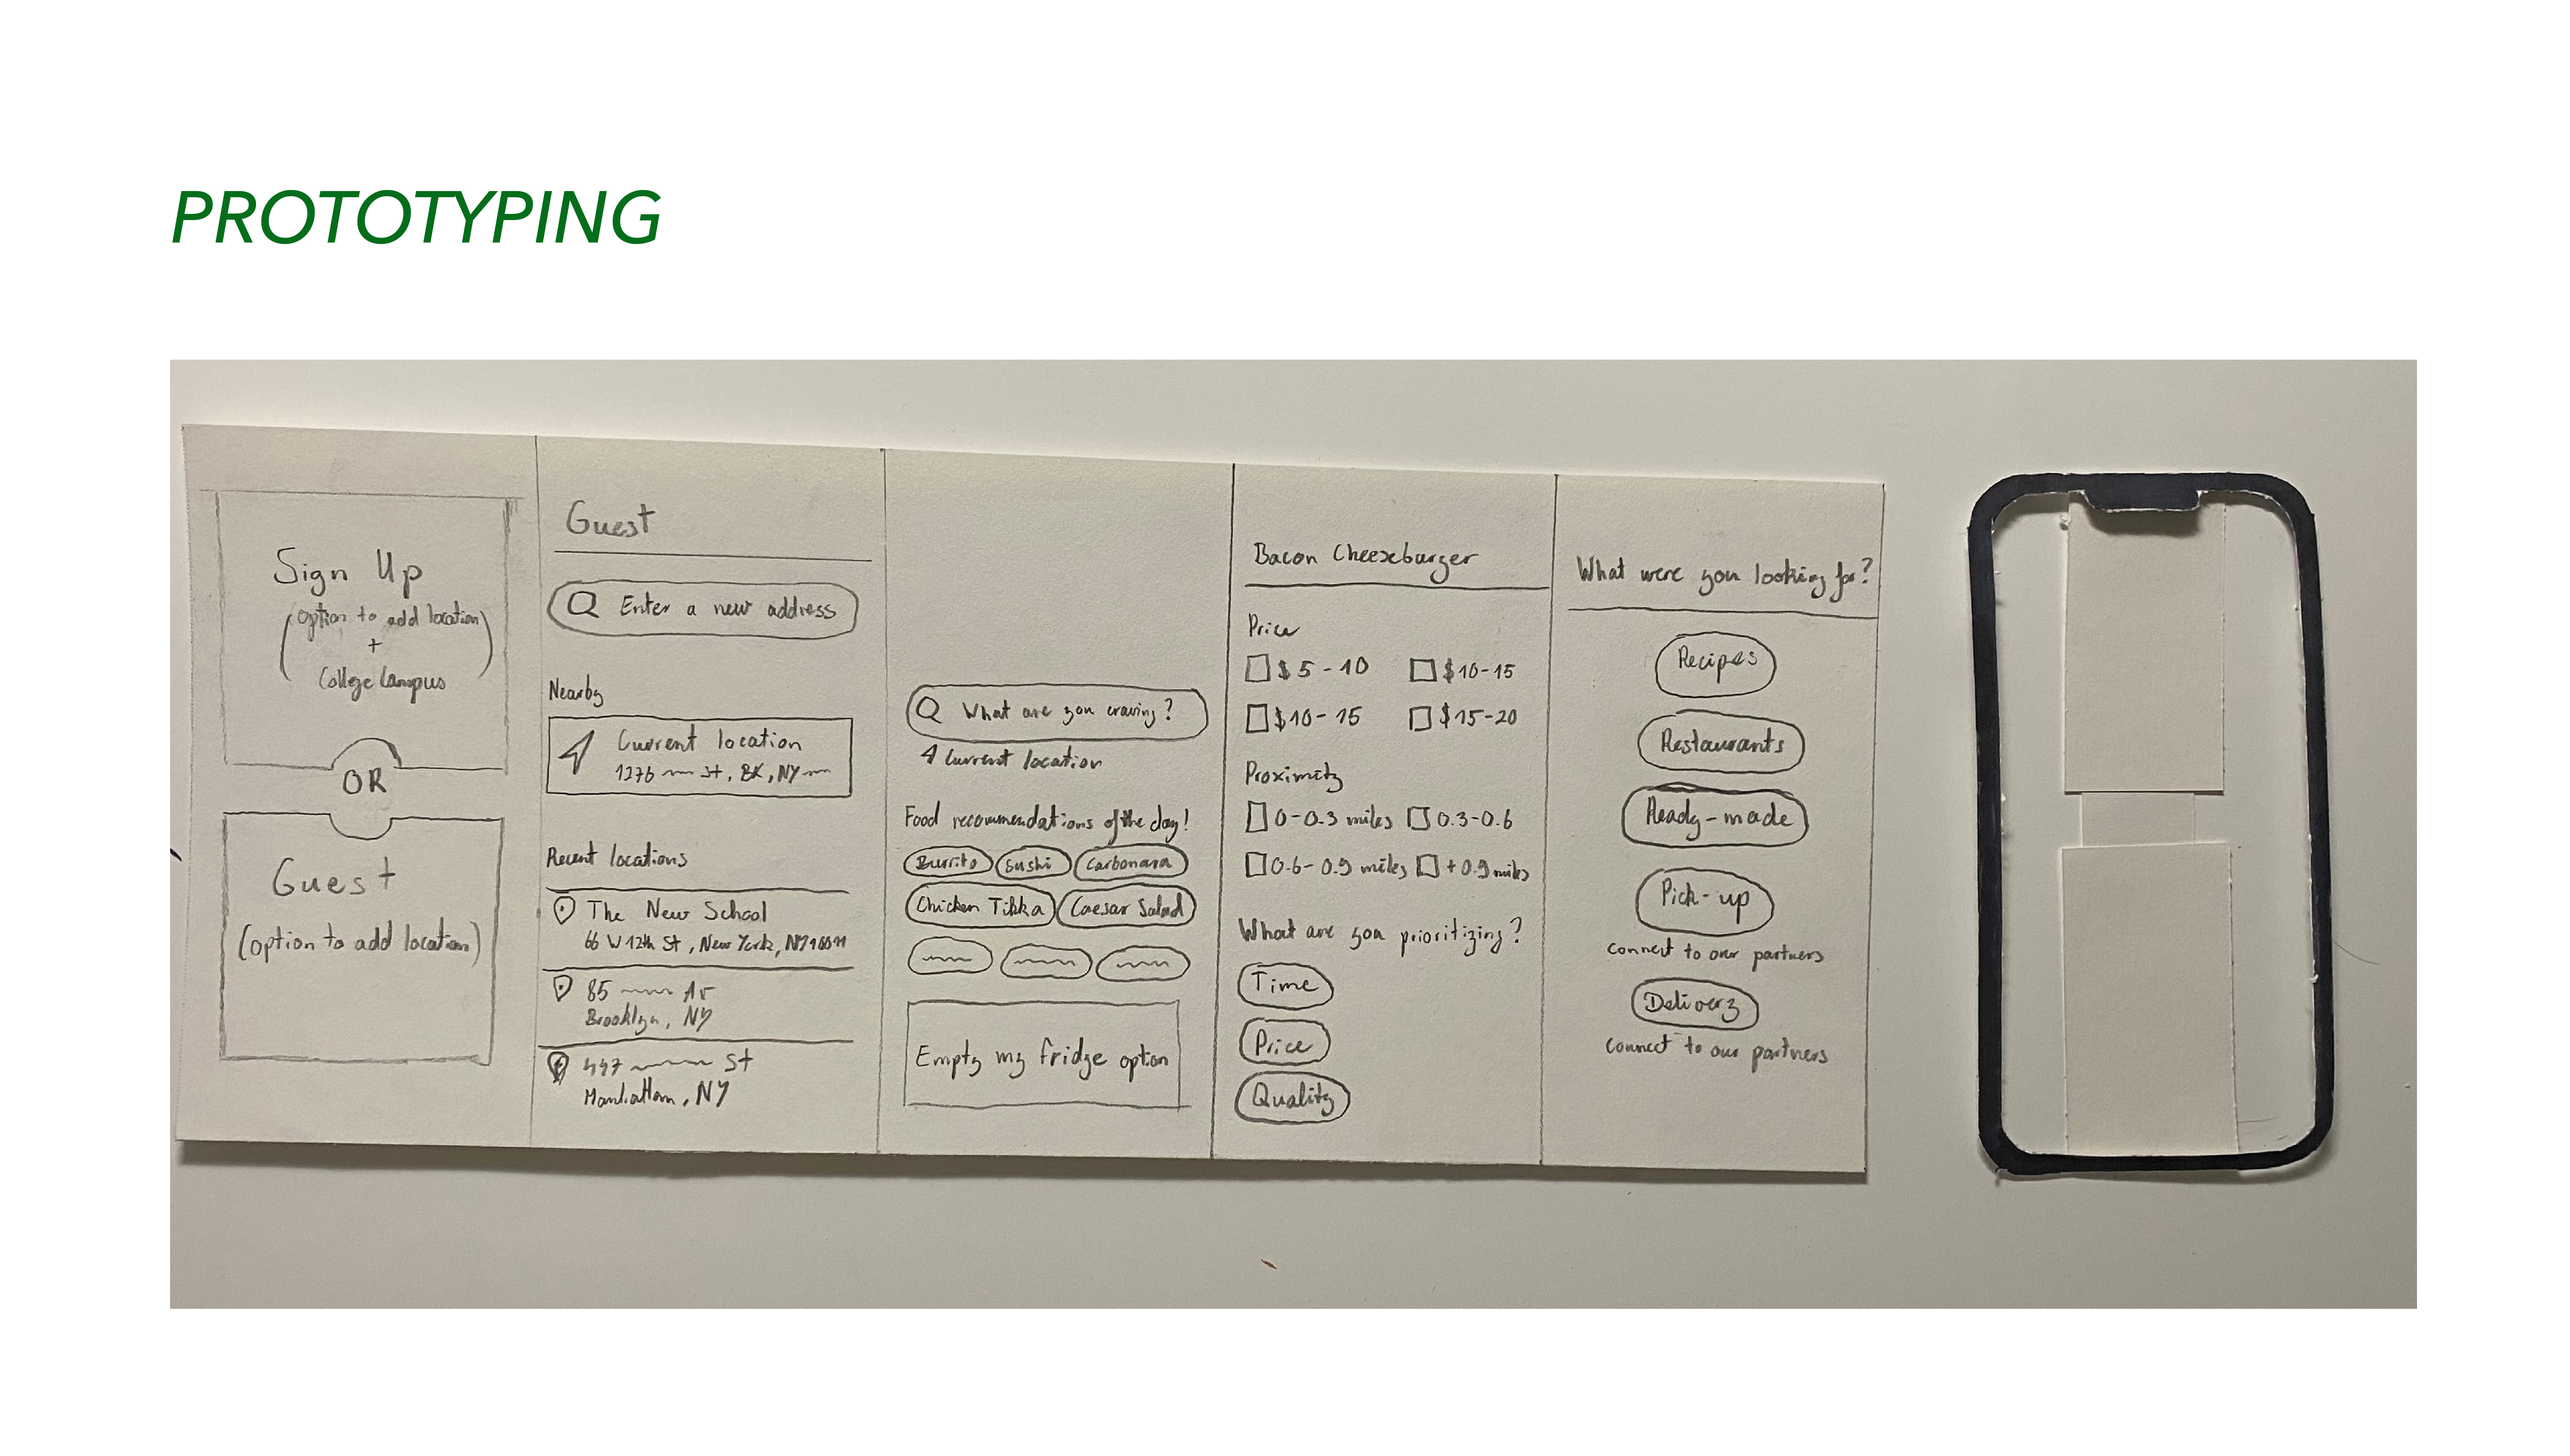 PROTOTYPING
Sign Up
(option to add location)
+
College Campus
OR
Guest
(option to add location)
Guest
Enter a new address
Nearby
Current location
1276 St, BK, NY
Recent locations
The New School
66 W 12th St, New York, NY 10011
85 Av
Brooklyn, NY
447 St
Manhattan, NY
What are you craving?
Current location
Food recommendations of the day!
Burrito Sushi Carbonara
Chicken Tikka Caesar Salad
Empty my fridge option
Bacon Cheeseburger
Price
$5-10 $10-15
$10-15 $15-20
Proximity
0-0.3 miles 0.3-0.6
0.6-0.9 miles +0.9 miles
What are you prioritizing?
Time
Price
Quality
What were you looking for?
Recipes
Restaurants
Ready-made
Pick-up
connect to our partners
Delivery
connect to our partners